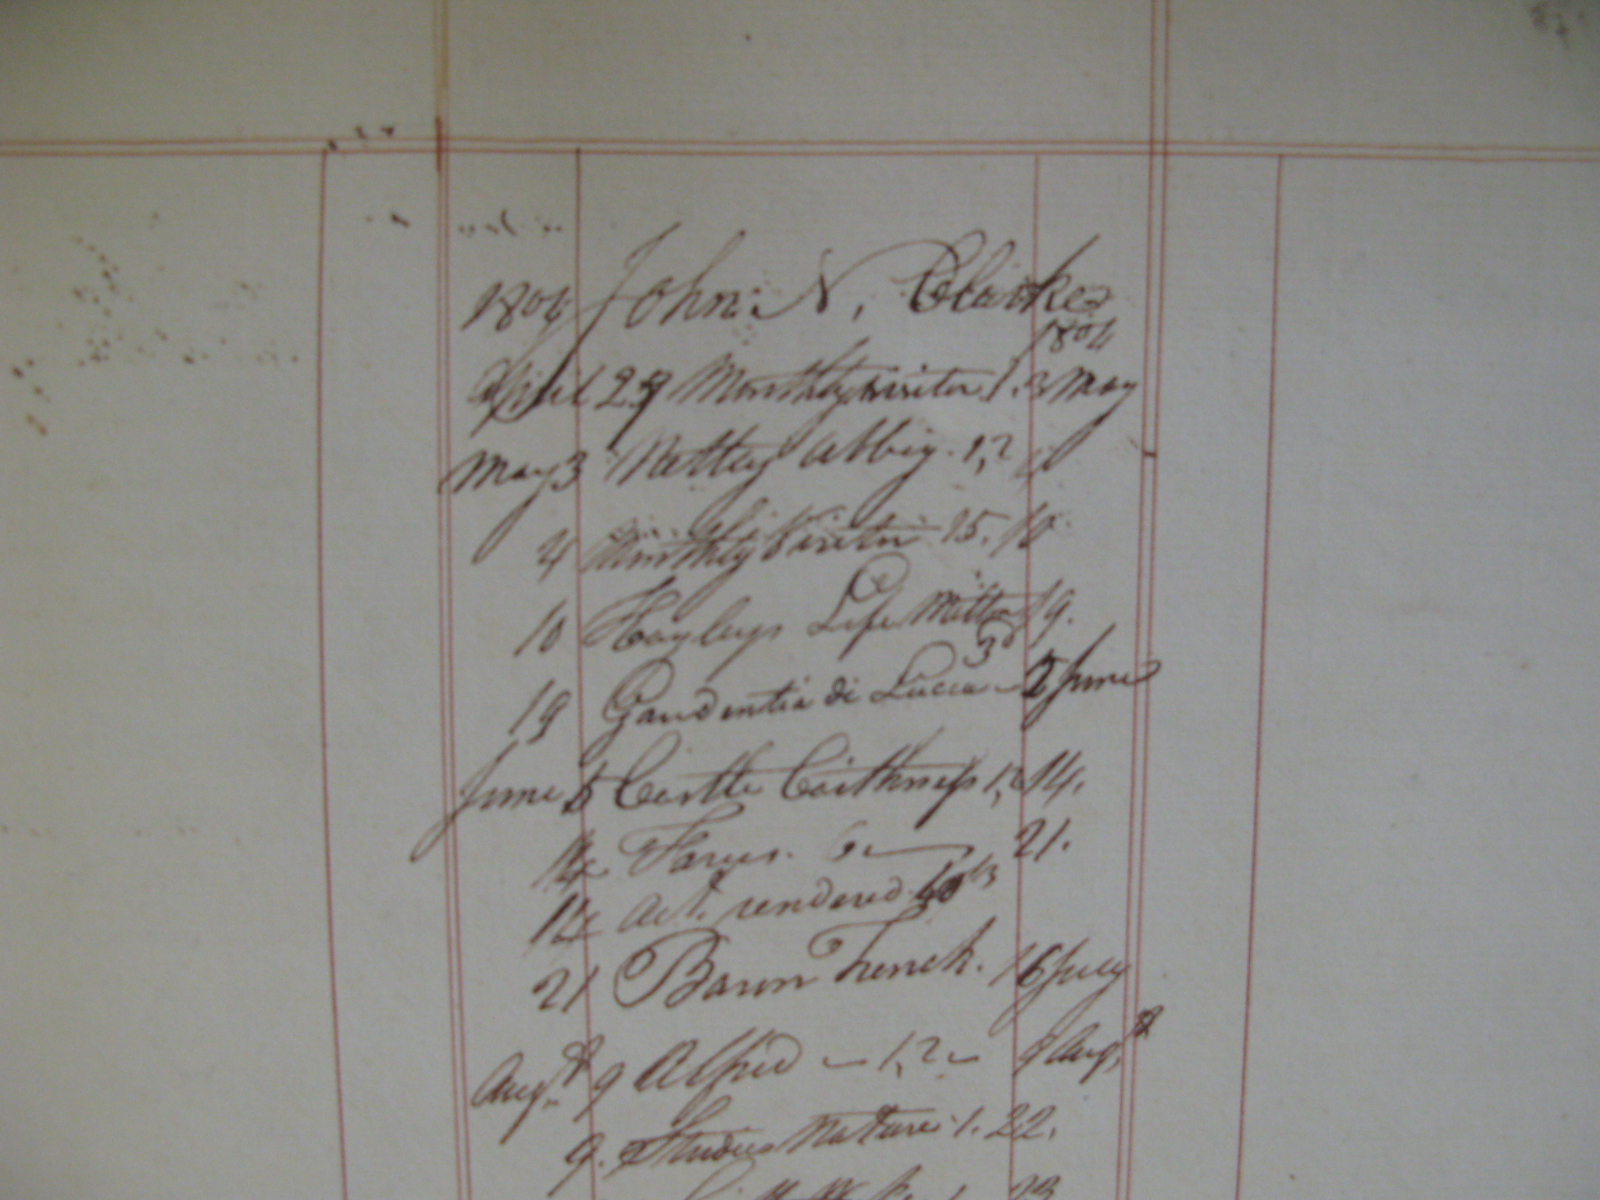 1804 John N. Clarke
1804
April 29 Monthly visitor 1. 3 May
May 3 Netley Abbey. 1,2
4 Monthly Visitor 15. 10
10 Hayleys Life Milton 19.
19 Gaudentia di Lucca - 5 June
June 5 Castle Caithness 1,2 14.
14 Farces. 6 — 21.
14 Act. rendered
21 Baron Trenck. 16 July
Augst 9 Alfred — 1,2 — 9 Augst
9. Studies Nature 1. 22.